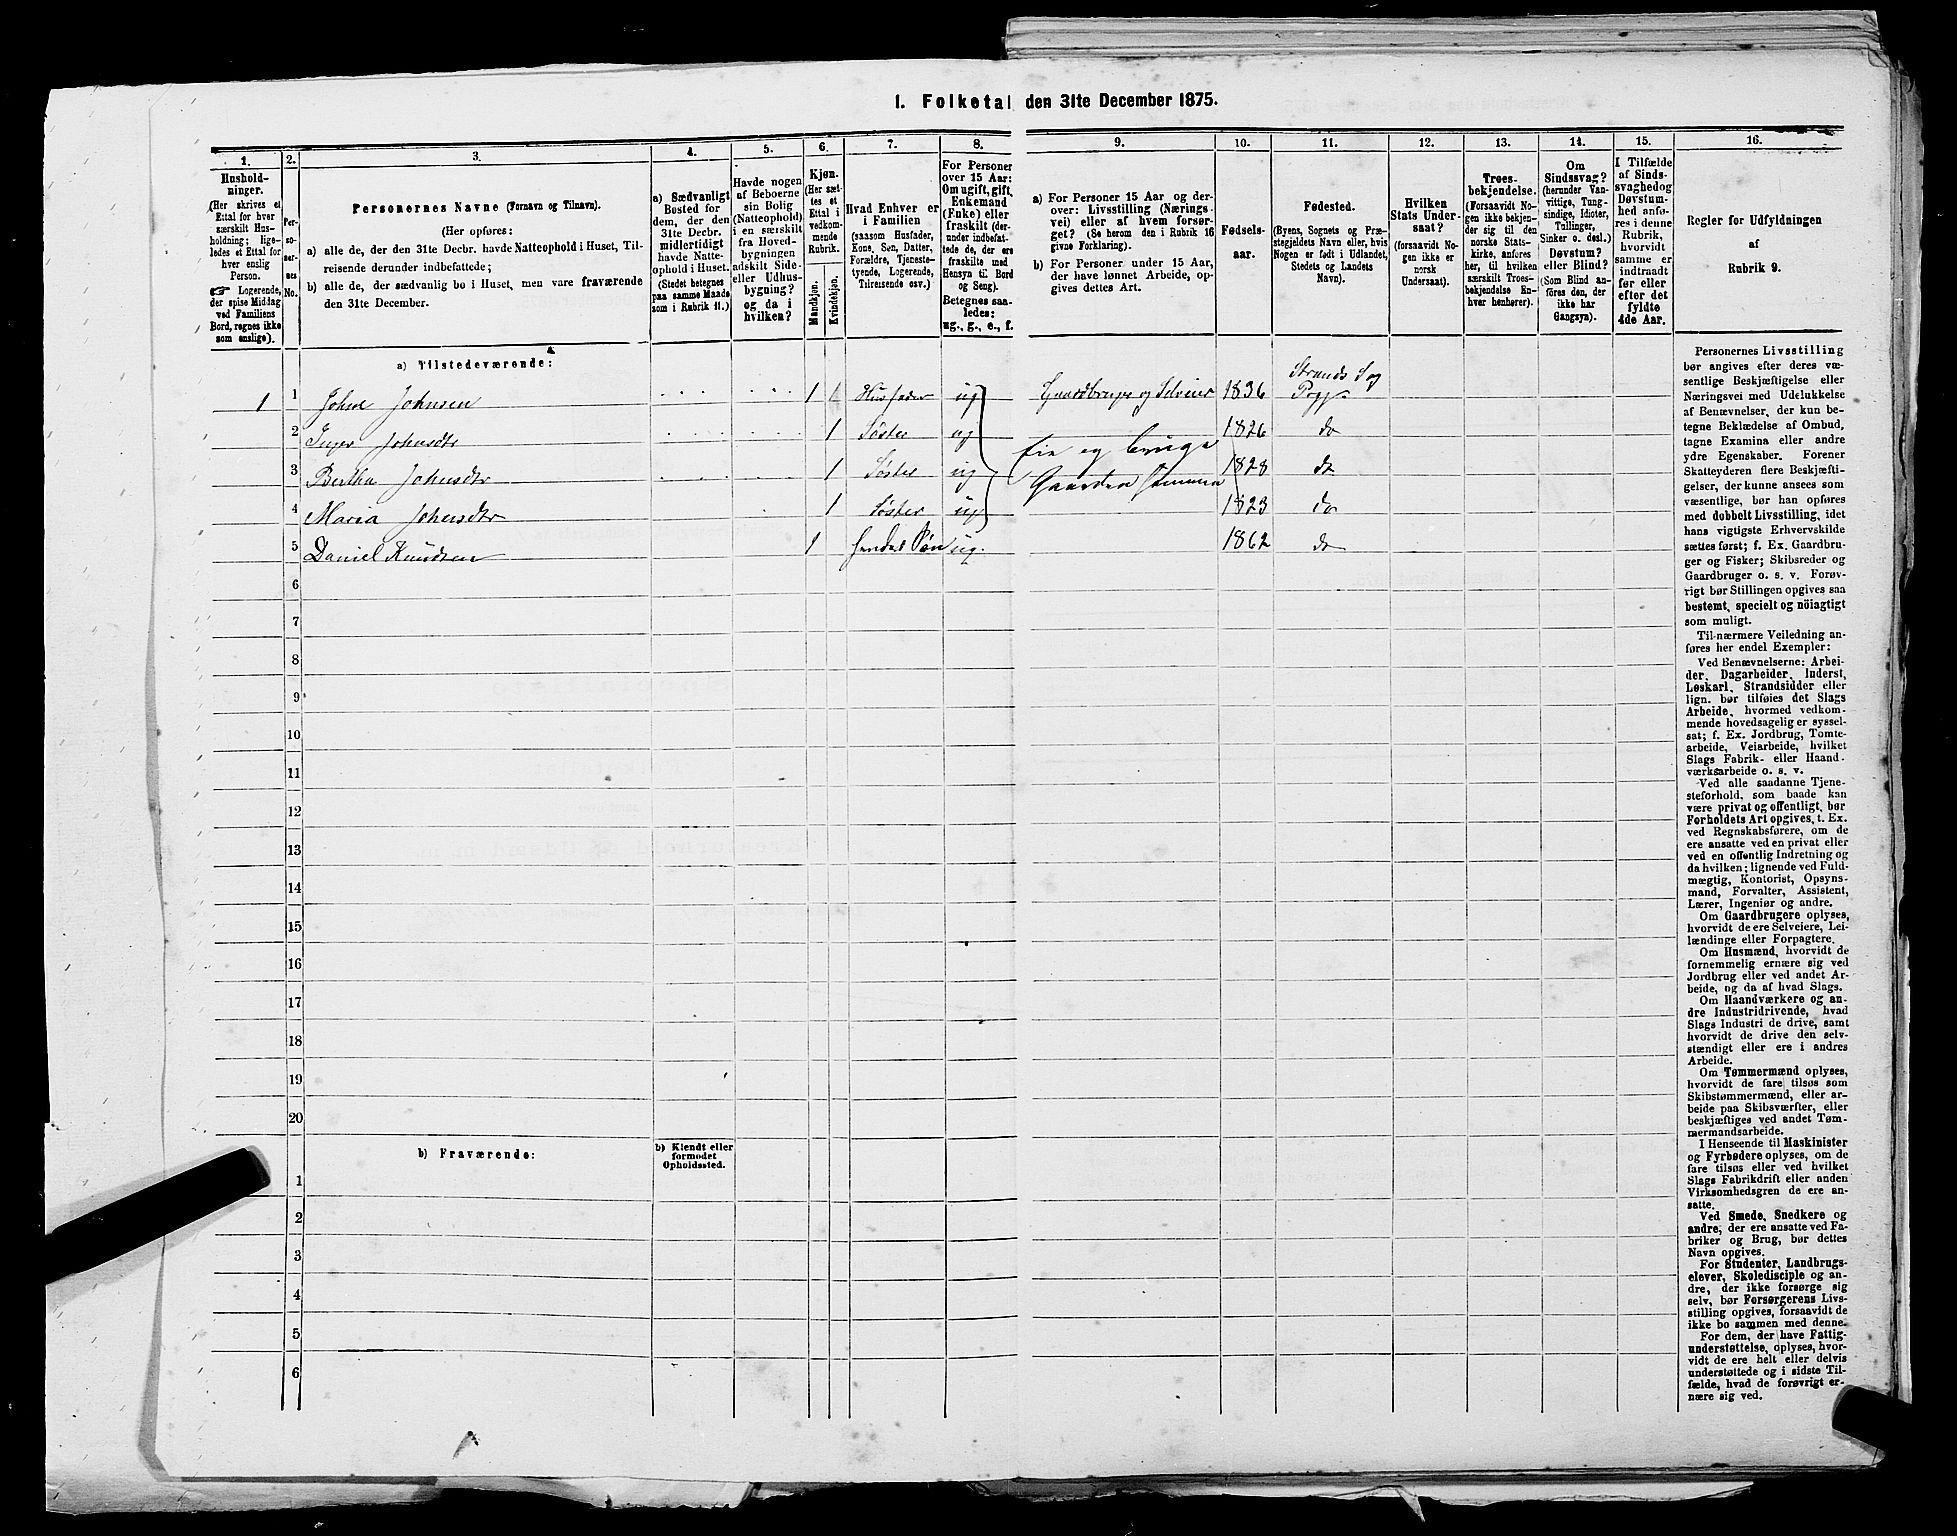 1. Folketal den 31te December 1875.
1. 2. 3. 4. 5. 6. 7. 8. 9. 10. 11. 12. 13. 14. 15. 16.
Hushold-
ninger.
(Her skrives et
Ettal for hver
særskilt Hus-
holdning; lige-
ledes et Ettal for
hver enslig
Person.
☞ Logerende,
der spise Middag
ved Familiens
Bord, regnes ikke
som enslige).
Per-
so-
ner-
nes
No.
Personernes Navne (Fornavn og Tilnavn).
(Her opføres:
a) alle de, der den 31te Decbr. havde Natteophold i Huset, Til-
reisende derunder indbefattede;
b) alle de, der sædvanlig bo i Huset, men vare fraværende
den 31te December.
a) Sædvanligt
Bosted for
dem, der den
31te Decbr.
midlertidigt
havde Natte-
ophold i Huset.
(Stedet betegnes
paa samme Maade
som i Rubrik 11.)
Havde nogen
af Beboerne
sin Bolig
(Natteophold)
i en særskilt
fra Hoved-
bygningen
adskilt Side-
eller Udhus-
bygning?
og da i
hvilken?
Kjøn.
(Her sæt-
tes et
Ettal i
vedkom-
mende
Rubrik.
Mandkjøn.
Kvindekjøn.
Hvad Enhver er
i Familien
(saasom Husfader,
Kone, Søn, Datter,
Forældre, Tjeneste-
tyende, Logerende,
Tilreisende osv.)
For Personer
over 15 Aar:
Om ugift, gift,
Enkemand
(Enke) eller
fraskilt (der-
under indbefat-
tede de, der ere
fraskilte med
Hensyn til Bord
og Seng).
Betegnes saa-
ledes:
ug., g., e., f.
a) For Personer 15 Aar og der-
over: Livsstilling (Nærings-
vei) eller af hvem forsør-
get? (Se herom den i Rubrik 16
givne Forklaring).
b) For Personer under 15 Aar,
der have lønnet Arbeide, op-
gives dettes Art.
Fødsels-
aar.
Fødested.
(Byens, Sognets og Præ-
stegjeldets Navn eller, hvis
Nogen er født i Udlandet,
Stedets og Landets
Navn).
Hvilken
Stats Under-
saat?
(forsaavidt No-
gen ikke er
norsk
Undersaat).
Troes-
bekjendelse.
(Forsaavidt No-
gen ikke bekjen-
der sig til den
norske Stats-
kirke, anføres
her, til hvilken
særskilt Troes-
bekjendelse En-
hver henhører).
Om
Sindssvag?
(herunder Van-
vittige, Tung-
sindige, Idioter,
Tullinger,
Sinker o. desl.)
Døvstum?
eller Blind?
(Som Blind an-
føres den, der
ikke har
Gangsyn).
I Tilfælde
af Sinds-
svaghed og
Døvstum-
hed anfø-
res i denne
Rubrik,
hvorvidt
samme er
indtraadt
før eller
efter det
fyldte
4de Aar.
Regler for Udfyldningen
af
Rubrik 9.
a) Tilstedeværende:
1 1 Johnsen 1 Husfader ug Gaardbruger og Selveier 1836 Strands Sog
2 Inger Johnsdtr 1 Søster ug 1826 do
3 Bertha Johnsdtr 1 Søster ug Eie og bruge 1828 do
4 Maria Johnsdtr 1 Søster ug Gaarden sammen 1823 do
5 Daniel Knudsen 1 Søn ug. 1862 do
6
7
8
9
10
11
12
13
14
15
16
17
18
19
20
b) Fraværende:
b) Kjendt eller
formodet
Opholdssted.
1
2
3
4
5
6
Personernes Livsstilling
bør angives efter deres væ-
sentlige Beskjæftigelse eller
Næringsvei med Udelukkelse
af Benævnelser, der kun be-
tegne Beklædelse af Ombud,
tagne Examina eller andre
ydre Egenskaber. Forener
Skatteyderen flere Beskjæfti-
gelser, der kunne ansees som
væsentlige, bør han opføres
med dobbelt Livsstilling, idet
hans vigtigste Erhvervskilde
sættes først; f. Ex. Gaardbru-
ger og Fisker; Skibsreder og
Gaardbruger o. s. v. Forøv-
rigt bør Stillingen opgives saa
bestemt, specielt og nöiagtigt
som muligt.
Til nærmere Veiledning an-
føres her endel Exempler:
Ved Benævnelserne: Arbei-
der, Dagarbeider, Inderst,
Løskarl, Strandsidder eller
lign. bør tilføies det Slags
Arbeide, hvormed vedkom-
mende hovedsagelig er syssel-
sat; f. Ex. Jordbrug, Tomte-
arbeide, Veiarbeide, hvilket
Slags Fabrik- eller Haand-
værksarbeide o. s. v.
Ved alle saadanne Tjene-
steforhold, som baade kan
være privat og offentligt, bør
Forholdets Art opgives, t. Ex.
ved Regnskabsførere, om de
ere ansatte ved en privat eller
ved en offentlig Indretning og
da hvilken; lignende ved Fuld-
mægtig, Kontorist, Opsyns-
mand, Forvalter, Assistent,
Lærer, Ingeniør og andre.
Om Gaardbrugere oplyses,
hvorvidt de ere Selveiere, Lei-
lændinge eller Forpagtere.
Om Husmænd, hvorvidt de
fornemmelig ernære sig ved
Jordbrug eller ved andet Ar-
beide, og da af hvad Slags.
Om Haandværkere og an-
dre Industridrivende, hvad
Slags Industri de drive, samt
hvorvidt de drive den selv-
stændigt eller ere i andres
Arbeide.
Om Tømmermænd oplyses,
hvorvidt de fare tilsøs som
Skibstømmermænd, eller ar-
beide paa Skibsværfter, eller
beskjæftiges ved andet Tøm-
mermandsarbeide.
I Henseende til Maskinister
og Fyrbødere oplyses, om de
fare tilsøs eller ved hvilket
Slags Fabrikdrift eller anden
Virksomhedsgren de ere an-
satte.
Ved Smede, Snedkere og
andre, der ere ansatte ved Fa-
briker og Brug, bør dettes
Navn opgives.
For Studenter, Landbrugs-
elever, Skoledisciple og an-
dre, der ikke forsørge sig
selv, bør Forsørgerens Livs-
stilling opgives, forsaavidt de
ikke bo sammen med denne.
For dem, der have Fattig-
understøttelse, oplyses, hvor-
vidt de ere helt eller delvis
understøttede og i sidste Til-
fælde, hvad de forøvrigt er-
nære sig ved.